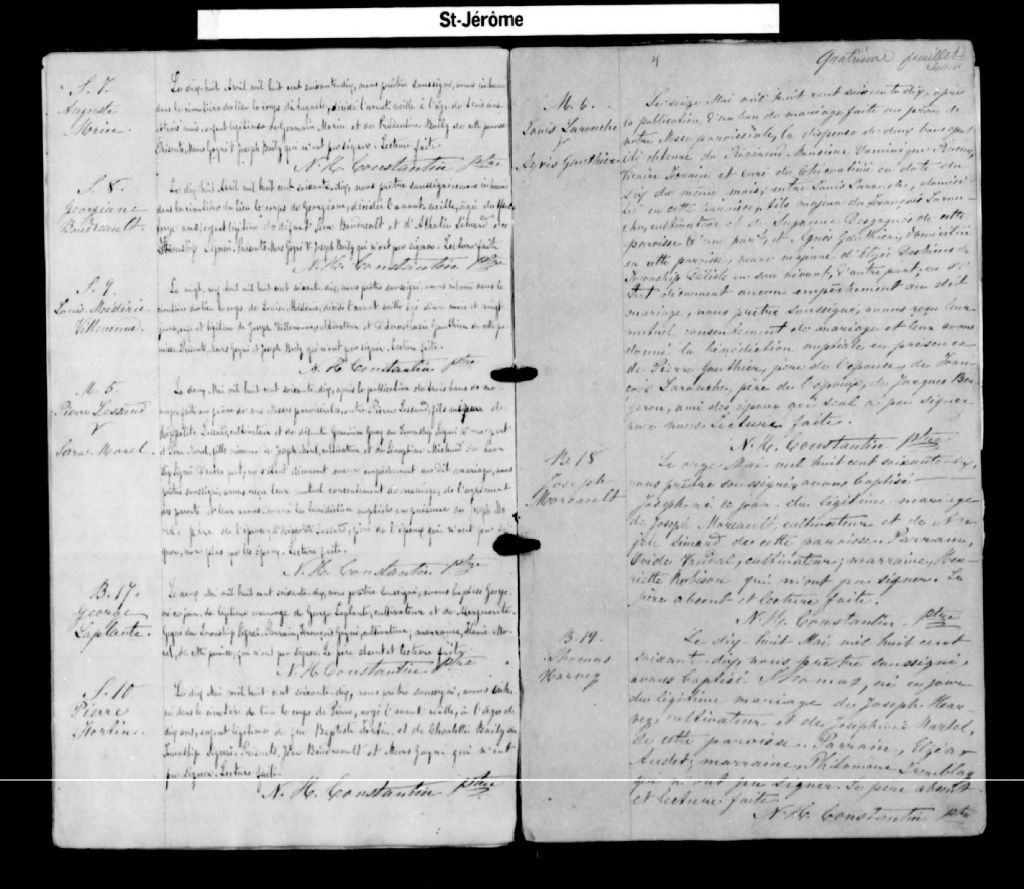 St-Jérôme
S. 7.
Auguste
Morin.
Le dix-huit Avril mil huit cent soixante-dix, nous prêtre soussigné, avons inhumé
dans le cimetière du lieu le corps d'Auguste, décédé l'avant-veille à l'âge de trois ans
trois mois, enfant légitime de Germain Morin et de Prudentine Boily de cette paroisse
Présents, Mars Gagné & Joseph Boily qui n'ont pu signer. Lecture faite.
N. H. Constantin ptre
S. 8.
Georgiane
Boudreault.
Le dix-huit Avril mil huit cent soixante-dix, nous prêtre soussigné avons inhumé
dans le cimetière du lieu le corps de Georgiane, décédée l'avant-veille, âgée de
ans, enfant légitime de défunt Boudreault et d'Athalie Simard du
Township Signaï. Présents Mars Gagné & Joseph Boily qui n'ont pu signer. Lecture faite
N. H. Constantin ptre
S. 9.
Louis-Médéric
Villeneuve.
Le vingt, mil huit cent soixante-dix, nous prêtre soussigné, avons inhumé dans le
cimetière du lieu le corps de Louis-Médéric, décédé l'avant-veille âgé d'un mois et vingt
jours, enfant légitime de Joseph Villeneuve, cultivateur et d'Anastasie Gauthier de cette pa-
roisse. Présents, Mars Gagné et Joseph Boily qui n'ont pu signer. Lecture faite.
N. H. Constantin ptre
M. 5
Pierre Lessard
&
Sara Morel.
Le deux Mai mil huit cent soixante-dix, après la publication de trois bans de ma-
riage, faite au prône de nos Messes paroissiales, entre Pierre Lessard, fils majeur de
Hippolite Lessard, cultivateur et de défunte du Township Signaï d'une part
et Sara Morel, fille mineure de Joseph Morel, cultivateur et de Séraphine Michaud du Town-
ship Signaï d'autre part; ne s'étant découvert aucun empêchement au dit mariage, nous
prêtre soussigné, avons reçu leur mutuel consentement de mariage, de l'agrément
des parents et leur avons donné la bénédiction nuptiale en présence de Joseph Mo-
rel, père de l'épouse, d'Hippolite Lessard, père de l'époux qui n'ont pu si-
gner, non plus que les époux. Lecture faite.
N. H. Constantin ptre
B. 17.
George
Laplante.
Le deux Mai mil huit cent soixante-dix, nous prêtre soussigné, avons baptisé George,
né ce jour, du légitime mariage de George Laplante, cultivateur et de Marguerite
Gagné du Township Signaï. Parrain, François Gagné, cultivateur; marraine, Mo-
rel, de cette paroisse, qui n'ont pu signer. Le père absent et lecture faite
N. H. Constantin ptre
S. 10
Pierre
Fortin.
Le dix Mai mil huit cent soixante-dix, nous prêtre soussigné, avons inhu-
mé dans le cimetière du lieu le corps de Pierre, noyé l'avant-veille, à l'âge de
dix ans, enfant légitime de feu Baptiste Fortin et de Charlotte Boily du
Township Signaï. Présents, Jean Boudreault et Mars Gagné qui n'ont
pu signer. Lecture faite.
N. H. Constantin ptre
4
Quatrième feuillet
M. 6.
Louis Larouche
&
Agnès Gauthier
Le seize Mai mil huit cent soixante-dix, après
la publication d'un ban de mariage faite au prône de
notre Messe paroissiale, la dispense de deux bans ayant
été obtenue du Révérend Monsieur Dominique Racine,
Vicaire Forain et curé de Chicoutimi en date du
dix du même mois; entre Louis Larouche, domici-
lié en cette paroisse, fils majeur de François Larou-
che, cultivateur et de Suzanne Desgagnés de cette
paroisse d'une part; et Agnès Gauthier, domiciliée
en cette paroisse, veuve majeure d'Elzée Deschênes du
Township Délisle en son vivant, d'autre part; ne s'é-
tant découvert aucun empêchement au dit
mariage, nous prêtre soussigné, avons reçu leur
mutuel consentement de mariage et leur avons
donné la bénédiction nuptiale en présence
de Pierre Gauthier, père de l'épouse, de Fran-
çois Larouche, père de l'époux, de Jacques Ber-
geron, ami des époux qui seul a pu signer
avec nous. Lecture faite.
N. H. Constantin ptre
B. 18
Joseph
Moreault
Le onze Mai mil huit cent soixante-dix,
nous prêtre soussigné, avons baptisé
Joseph né ce jour du légitime mariage
de Joseph Moreault, cultivateur et de An-
gèle Simard de cette paroisse. Parrain,
Ovide cultivateur; marraine, Hen-
riette Robeson qui n'ont pu signer. Le
père absent et lecture faite.
N. H. Constantin. ptre
B. 19.
Thomas
Harvey
Le dix-huit Mai mil huit cent
soixante-dix, nous prêtre soussigné,
avons baptisé Thomas, né ce jour
du légitime mariage de Joseph Har-
vey cultivateur et de Joséphine Martel,
de cette paroisse. Parrain, Elzéar
Audet; marraine, Philomène Tremblay
qui n'ont pu signer. Le père absent
et lecture faite.
N. H. Constantin ptre